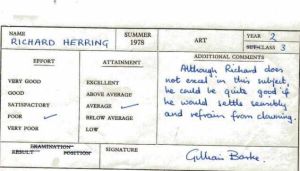 NAME SUMMER YEAR 2
RICHARD HERRING 1978 ART SUB-CLASS 3
EFFORT ATTAINMENT ADDITIONAL COMMENTS
VERY GOOD EXCELLENT Although Richard does
GOOD ABOVE AVERAGE not excel in this subject,
SATISFACTORY AVERAGE ✓ he could be quite good if
POOR ✓ BELOW AVERAGE he would settle sensibly
VERY POOR LOW and refrain from clowning.
EXAMINATION
RESULT POSITION SIGNATURE Gillian Barke.